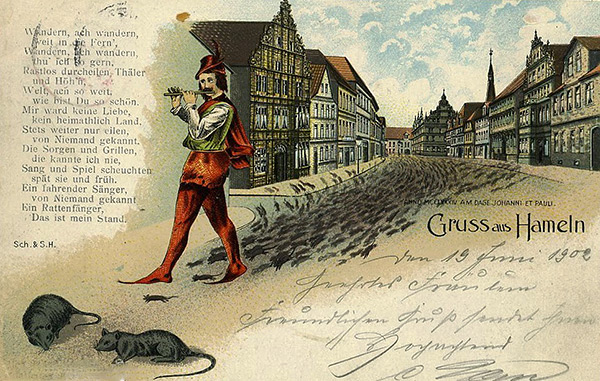 Wandern, ach wandern,
weit in die Fern',
Wandern, ach wandern,
thu' ich so gern,
Rastlos durcheilen Thäler
und Höh'n,
Welt, ach so weit,
wie bist Du so schön.
Mir ward keine Liebe,
kein heimathlich Land,
Stets weiter nur eilen,
von Niemand gekannt.
Die Sorgen und Grillen,
die kannte ich nie,
Sang und Spiel scheuchten
spät sie und früh,
Ein fahrender Sänger,
von Niemand gekannt
Ein Rattenfänger,
Das ist mein Stand.
Sch. & S.H.
ANNO MCCLXXXIV AM DAGE JOHANNI ET PAULI.
Gruss aus Hameln
den 19 Juni 1902
Geehrtes Fräulein
Freundlichen Gruß sendet Ihnen
Hochachtend